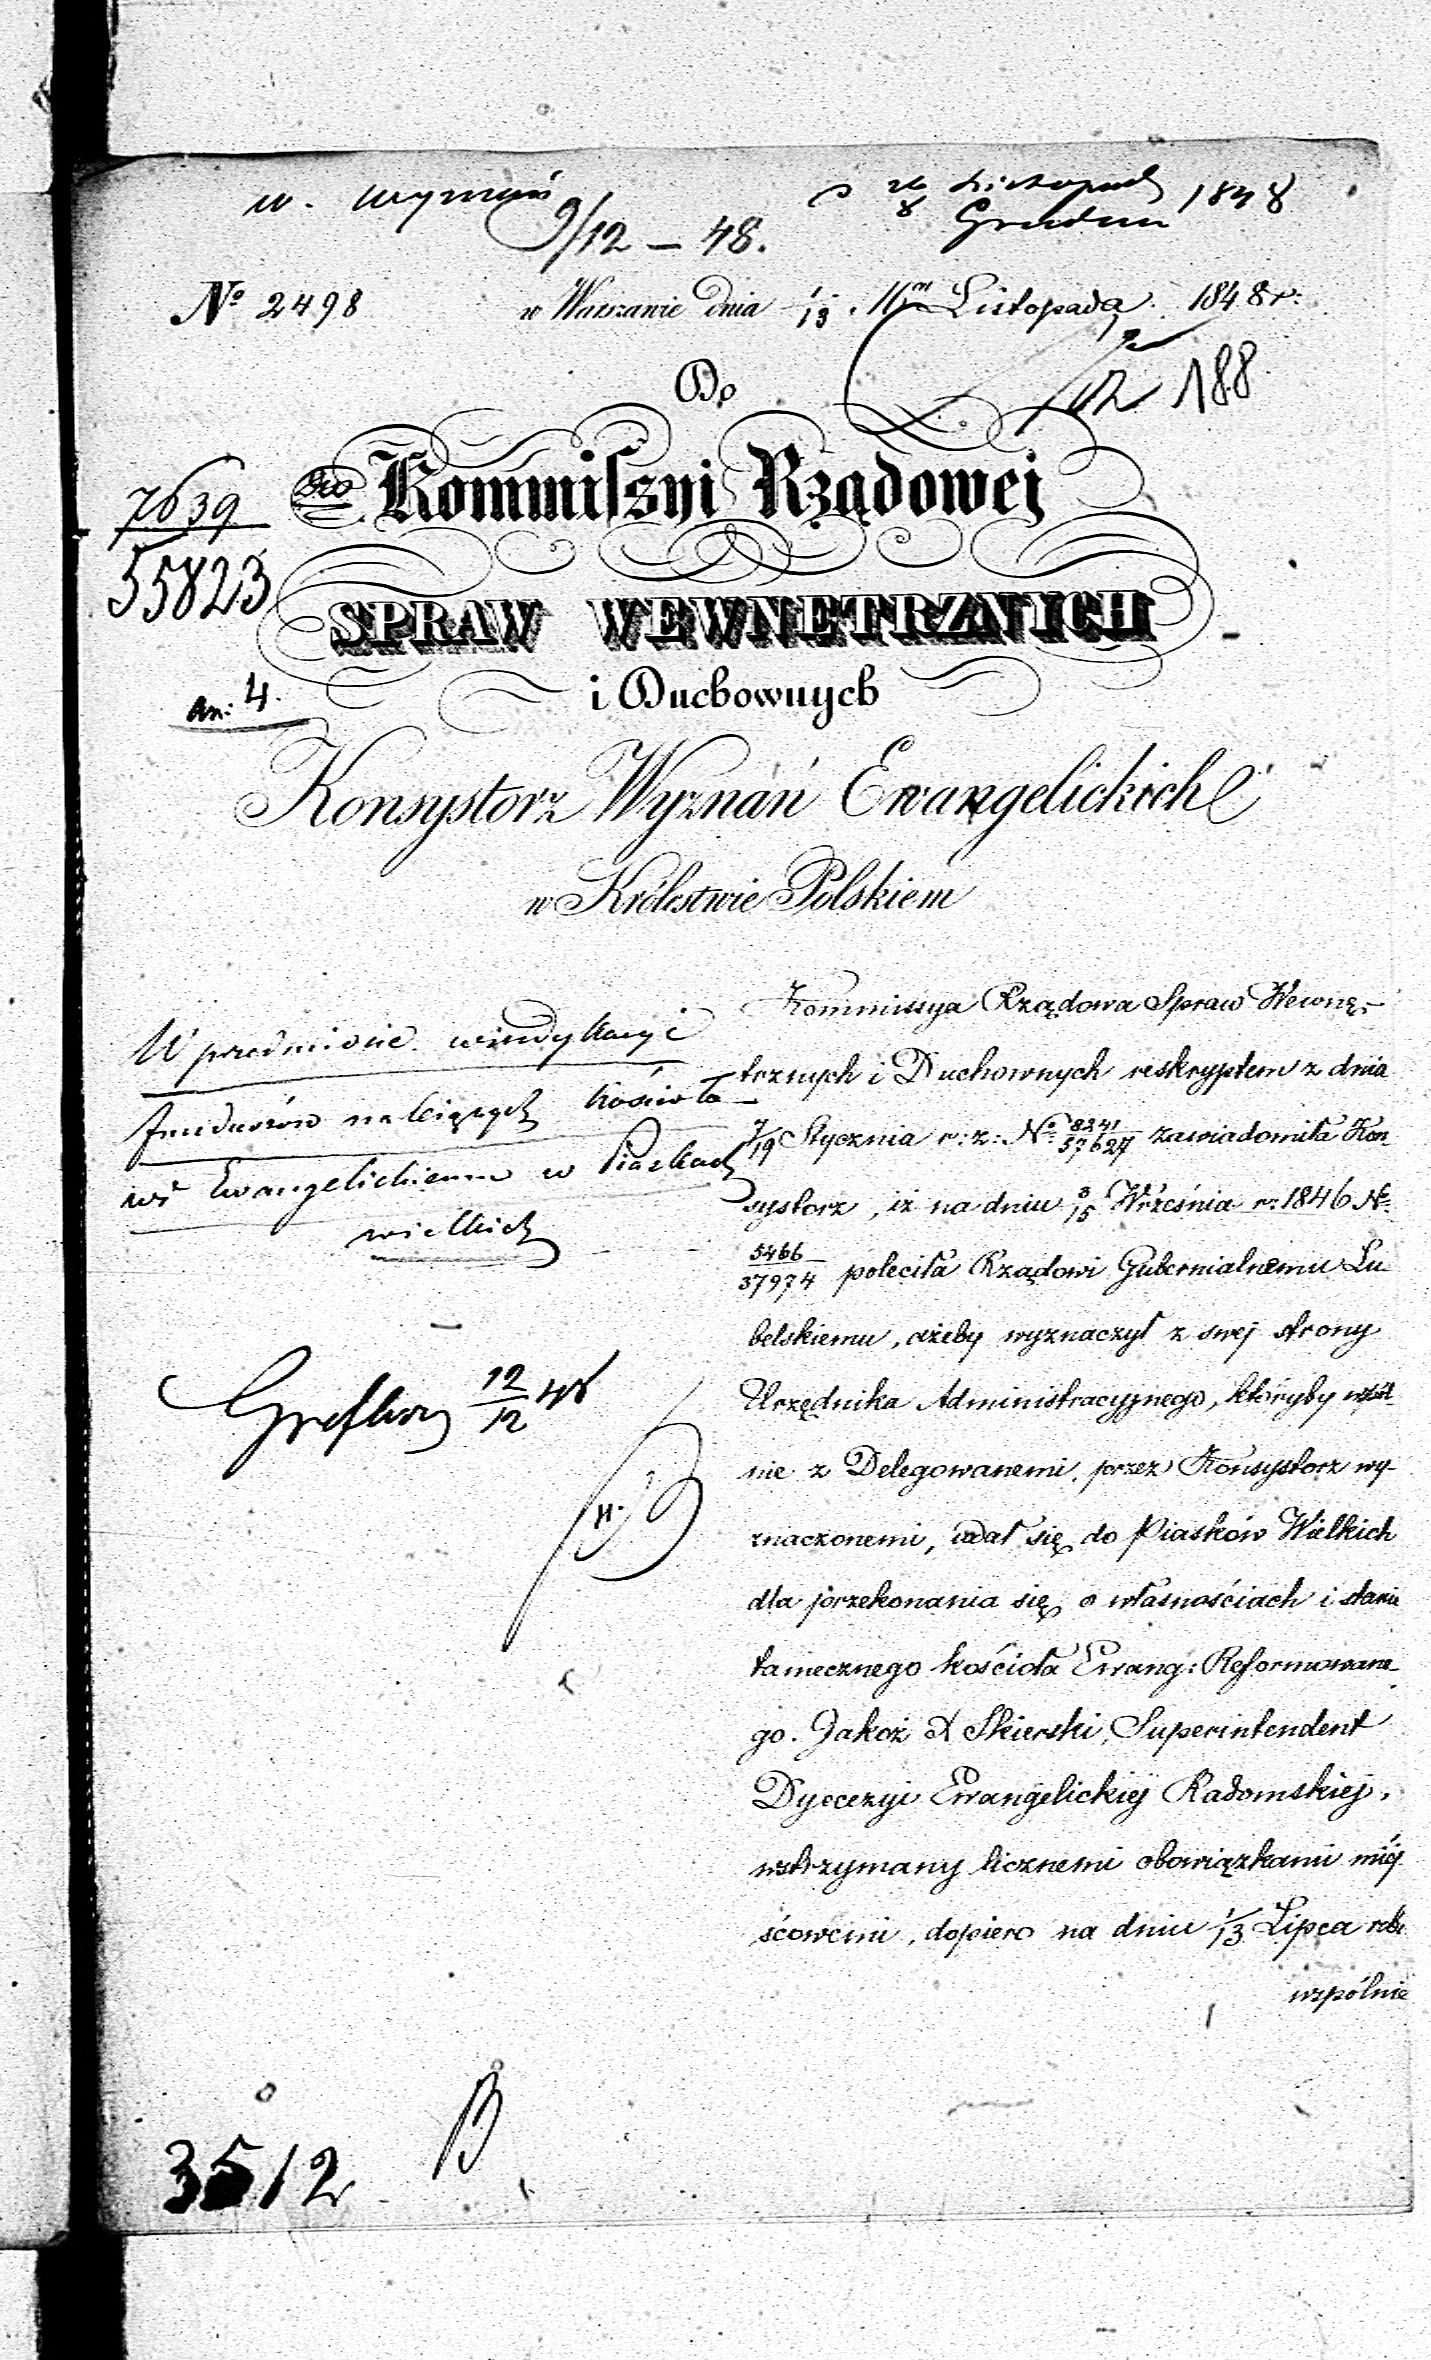 w. wyznań
9/12 – 48.
26 Listopada 1848
8 Grudnia
№ 2498 w Warszawie dnia Listopada 1848 r:
12 188
Do
Kommissyi Rządowej
7639
55823
SPRAW WEWNĘTRZNYCH
i Duchownych
an: 4.
Konsystorz Wyznań Ewangelickich
w Królestwie Polskiem
W przedmiocie windykacyi
funduszów należących kościoło-
wi Ewangelickiemu w Piaskach
wielkich
12/12 48
Kommissya Rządowa Spraw Wewnę-
trznych i Duchownych reskryptem z dnia
7/19 Stycznia r: z: №: 8241/57627 zawiadomiła Kon
systorz, iż na dniu 3/15 Września r: 1846 №
5466/37974 poleciła Rządowi Gubernialnemu Lu
belskiemu, ażeby wyznaczył z swej strony
Urzędnika Administracyjnego, któryby wspól-
nie z Delegowanemi, przez Konsystorz wy-
znaczonemi, udał się do Piasków Wielkich
dla przekonania się o własnościach i stanie
tamecznego kościoła Ewang: Reformowane
go. Jakoż X Skierski, Superintendent
Dyecezyi Ewangelickiej Radomskiej,
wstrzymany licznemi obowiązkami miej
scowemi, dopiero na dniu 1/13 Lipca rb:
wspólnie
3512 B